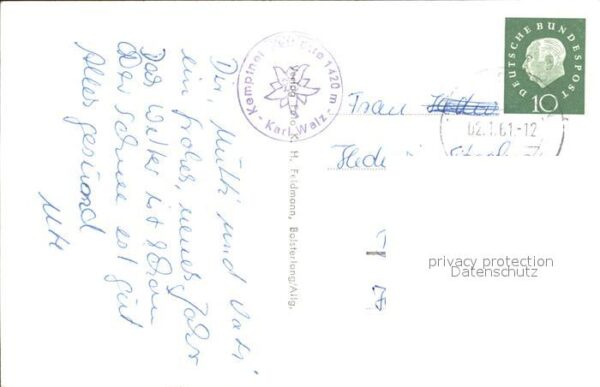 Dir, Mutti und Vati
ein frohes, neues Jahr
Das Wetter ist schön
der Schnee ist gut
Alles gesund
Kemptner 1420 m
- Karl Walz -
Verlag Foto K. H. Feldmann, Bolsterlang/Allg.
DEUTSCHE BUNDESPOST
10
02.1.61.-12
Frau
privacy protection
Datenschutz